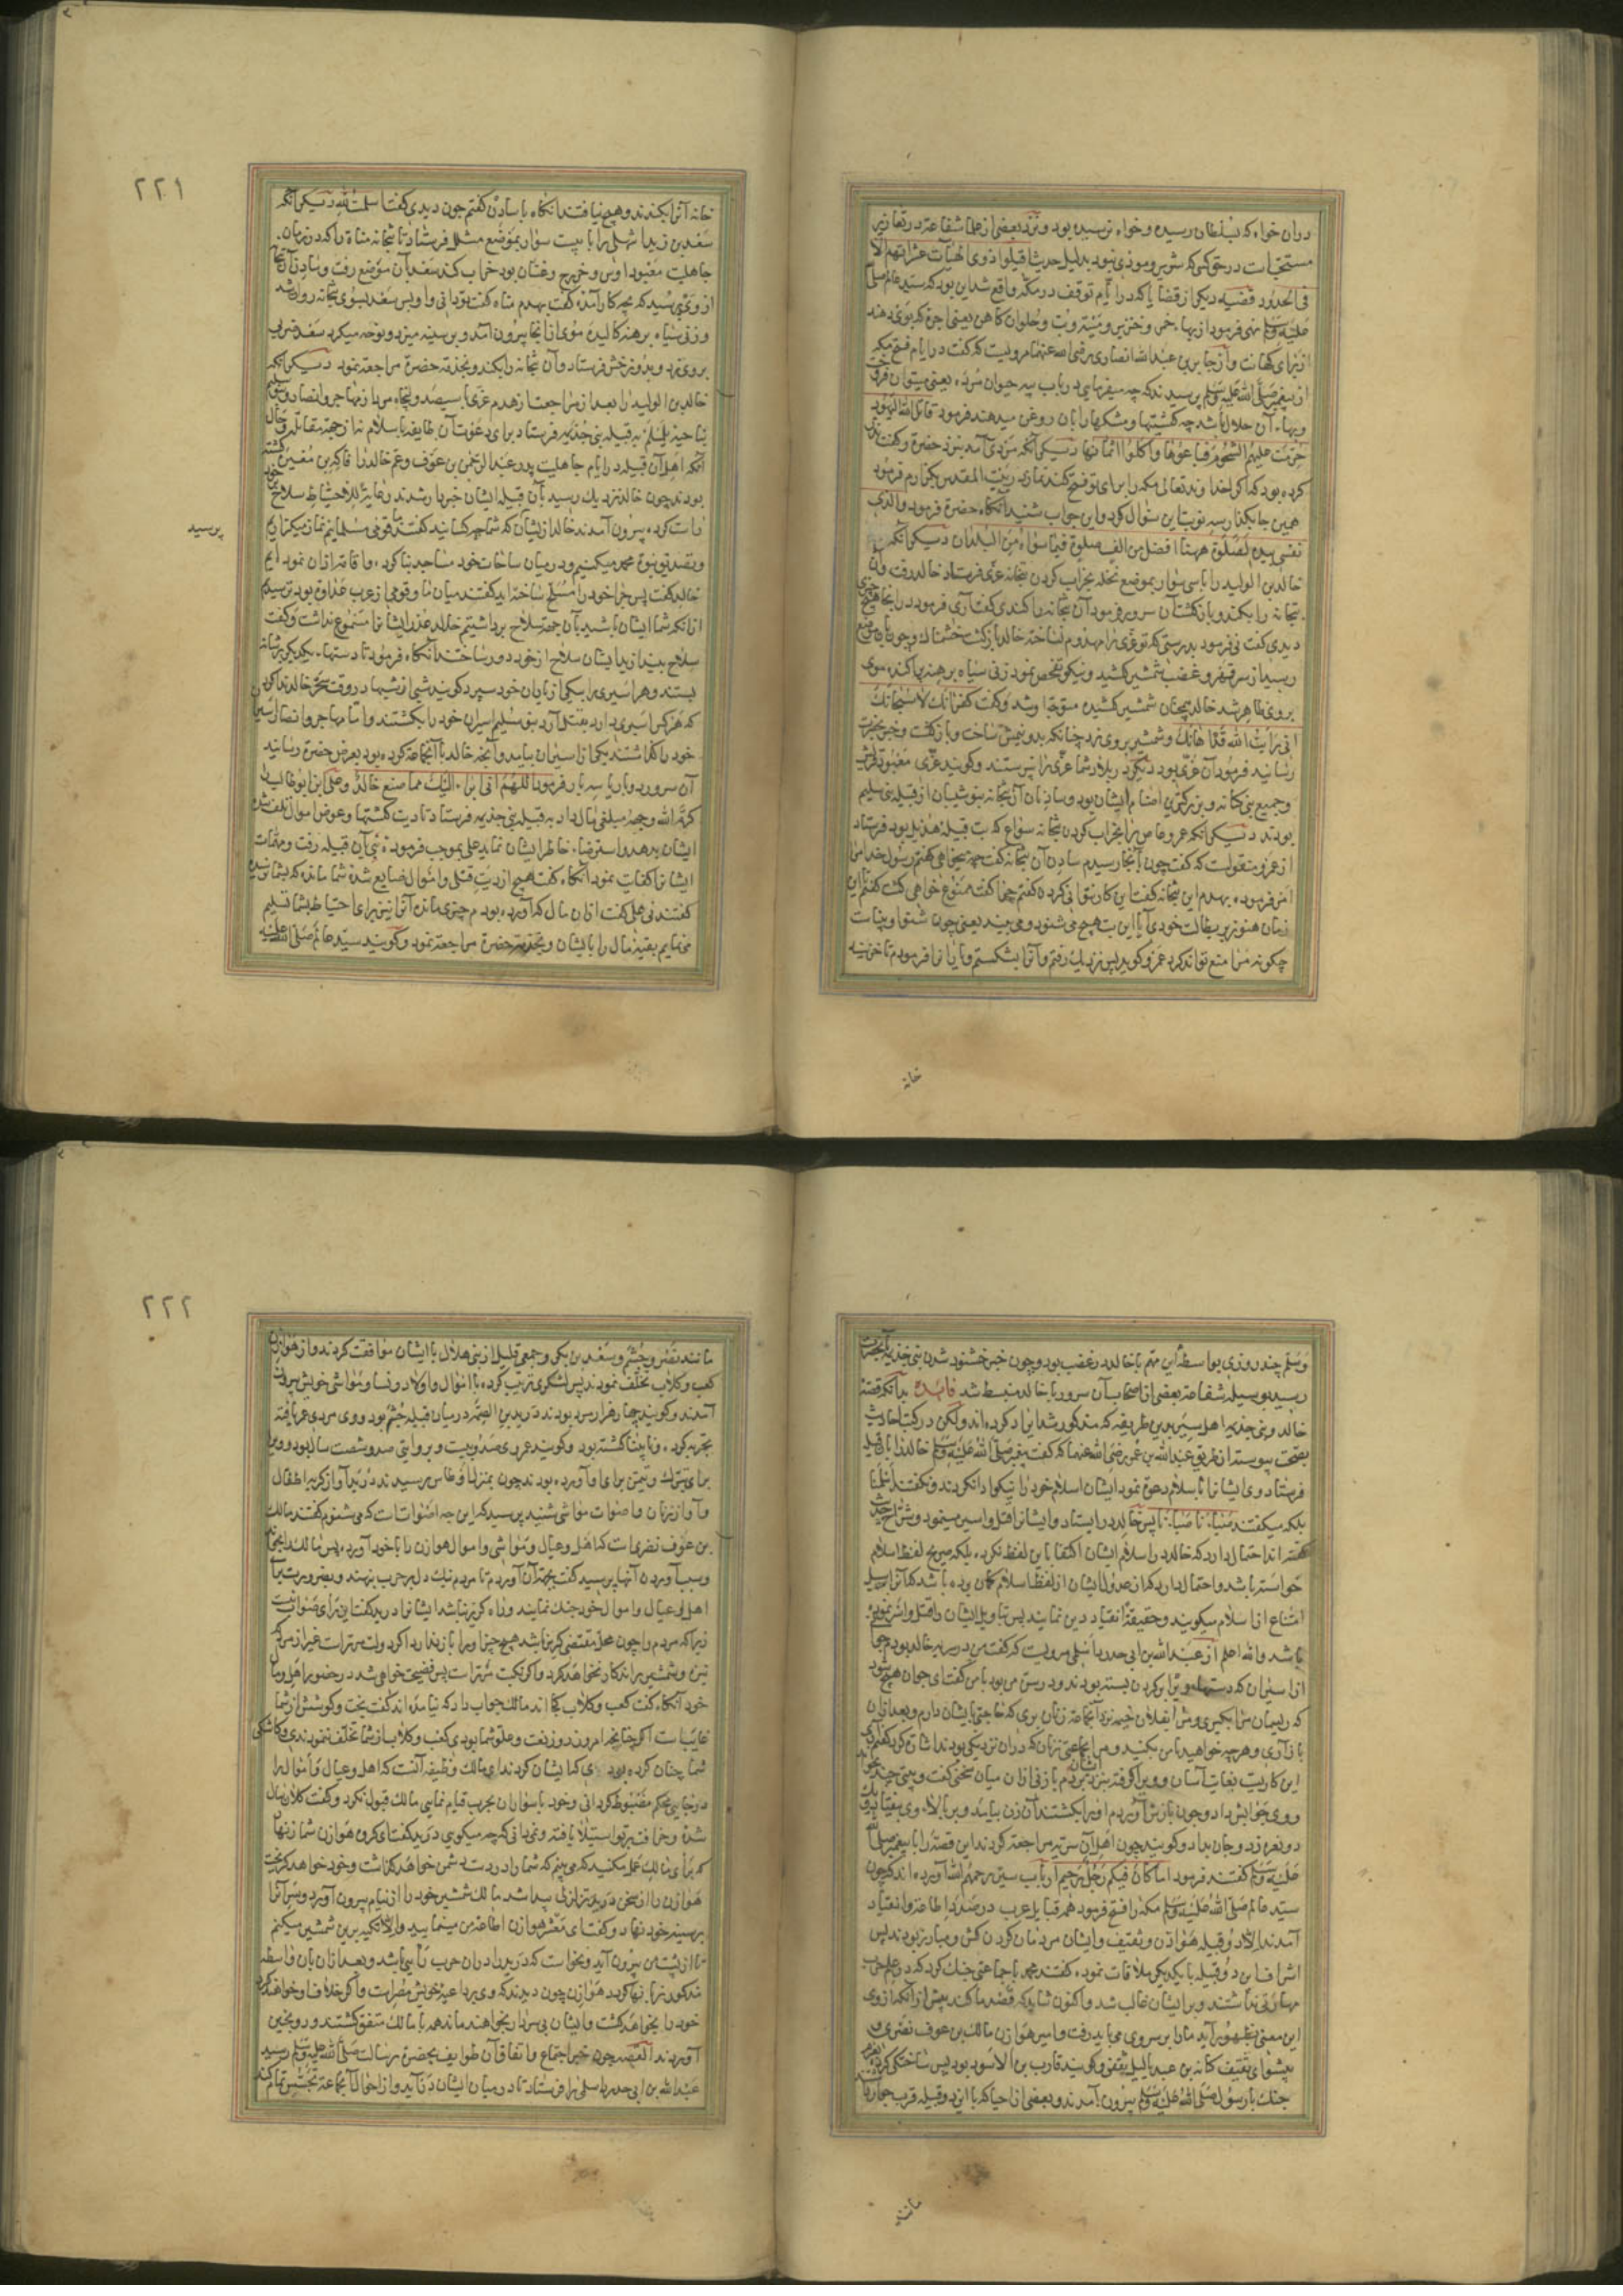 دران خواه که بسلطان رسیده و خواه نرسیده بود و نزد بعضی از علما شفاعت در تعازیر
مستحبات در حق کسی که شریر و موذی نبود بدلیل حدیث اقیلوا ذوی الهیآت عثراتهم الا
فی الحدود قضیه دیگر از قضایا که در ایام توقف در مکه واقع شد این بود که سید عالم صلی
علیه وسلم نهی فرمود از بهاء خمر و خنزیر و میته و بت و حلوان کاهن یعنی اجره که بوی دهند
از برای کهانت و از جابر بن عبدالله انصاری رضی الله عنهما مرویست که گفت در ایام فتح مکه
از پیغمبر صلی الله علیه وسلم پرسیدند که چه میفرمایی در باب پیه حیوان مرده یعنی میتوان فروخت
و بهاء آن حلال باشد چه کشتیها و مشکها را بان روغن میدهند فرمود قاتل الله الیهود
حرمت علیهم الشحوم فباعوها و اکلوا اثمانها دیگر آنکه مردی آمد بنزد حضرة و گفت نذر
کرده بودم که اگر خداوند تعالی مکه را برای تو فتح کند نمازی در بیت المقدس بگزارم فرمود
همین جا بگذار سه نوبت این سؤال کرد و این جواب شنید آنگاه حضرة فرمود والذی
نفسی بیده لصلوة ههنا افضل من الف صلوة فیما سواه من البلدان دیگر آنکه
خالد بن الولید را با سی سوار بموضع نخله بخراب کردن بتخانه عزی فرستاد خالد رفت و آن
بتخانه را بکند و بازگشت آن سرور فرمود آن بتخانه را کندی گفت آری فرمود در آنجا هیچ چیزی
دیدی گفت نی فرمود بدرستی که تو عزی را مهدوم نساخته خالد بازگشت خشمناک و چون بان موضع
رسید از سر قهر و غضب شمشیر کشید و نیکو تفحص نمود زنی سیاه برهنه پراکنده موی
بروی ظاهر شد خالد همچنان شمشیر کشیده متوجه او شد و گفت کفرانک لا سبحانک
انی رایت الله قد اهانک و شمشیر بروی زد چنانکه بدو نیمش ساخت و بازگشت و خبر بحضرت
رسانید فرمود آن عزی بود دیگر در بلاد شما عزی را نپرستند و گویند عزی معبود قریش
و جمیع بنی کنانه و بزرگترین اصنام ایشان بود و سادنان آن بتخانه بنو شیبان از قبیله بنی سلیم
بودند دیگر آنکه عمرو عاص را بخراب کردن بتخانه سواع که بت قبیله هذیل بود فرستاد
از عمرو منقولست که گفت چون آنجا رسیدم سادن آن بتخانه گفت چه میخواهی گفتم رسول خدا مرا
امر فرموده بهدم این بتخانه گفت این کار نتوانی کرد گفتم چرا گفت ممنوع خواهی گشت گفتم این
زمان هنوز بر بطالت خودی آیا این بت هیچ می شنود و می بیند یعنی چون شنوا و بینا نیست
چگونه مرا منع تواند کرد عمرو گوید پس نزدیک رفتم و آنرا بشکستم و یارانرا فرمودم تا خزینه
خانه
٢٢١
خانه آنرا بکندند و هیچ نیافتند آنگاه با سادن گفتم چون دیدی گفت اسلمت لله دیگر آنکه
سعد بن زید اشهلی را با بیست سوار بموضع مشلل فرستاد تا بتخانه مناة را که در زمان
جاهلیت معبود اوس و خزرج و غسان بود خراب کند سعد بآن موضع رفت و سادن آنجا
از وی پرسید که بچه کار آمده گفت بهدم مناه گفت تو دانی و او پس سعد بسوی بتخانه روان شد
و زنی سیاه برهنه کالیده موی از انجا بیرون آمد و بر سینه میزد و نوحه میکرد سعد ضربی
بروی زد و بدوزخش فرستاد و آن بتخانه را بکند و بخدمت حضرة مراجعت نمود دیگر آنکه
خالد بن الولید را بعد از مراجعت از هدم عزی با سیصد و پنجاه مرد از مهاجر و انصار و بنی سلیم
بناحیه یلملم به قبیله بنی جذیمه فرستاد برای دعوت آن طایفه باسلام نه از جهت مقاتله و حال
آنکه اهل آن قبیله در ایام جاهلیت پدر عبد الرحمن بن عوف و عم خالد را فاکه بن مغیره کشته
بودند چون خالد نزدیک رسید بآن قبیله ایشان خبردار شدند رعایة للاحتیاط سلاح خود
راست کرده بیرون آمدند خالد از ایشان که شما چه کسانید گفتند ما قومی مسلمانیم نماز میگزاریم
پرسید
و تصدیق نبوة محمد میکنیم و در میان ساحات خود مساجد بنا کرده و اقامت اذان نموده ایم
خالد گفت پس چرا خود را مسلح ساخته اید گفتند میان ما و قومی از عرب عداوة بود ترسیدیم
از آنکه شما ایشان باشید بآن جهت سلاح برداشتیم خالد عذر ایشانرا مسموع نداشت و گفت
سلاح بیندازید ایشان سلاح از خود دور ساختند آنگاه فرمود تا دستهاء یکدیگر بر شانه
بستند و هر اسیری را بیکی از یاران خود سپرد گویند شبی از شبها در وقت سحر خالد ندا کرد
که هر کس اسیری دارد بقتل آرد بنو سلیم اسیران خود را بکشتند و اما مهاجر و انصار اسیران
خود را گذاشتند یکی از اسیران بیامد و آنچه خالد با آنجماعة کرده بود بعرض حضرة رسانید
آن سرور دو بار یا سه بار فرمود اللهم انی ابراء الیک مما صنع خالد و علی ابن ابو طالب را
کرم الله وجهه مبلغی مال داد به قبیله بنی جذیمه فرستاد تا دیت کشتها و عوض اموال تلف شده
ایشان بدهد و استرضاء خاطر ایشان نماید علی بموجب فرموده نبی آن قبیله رفت و مهمات
ایشانرا کفایت نمود آنگاه گفت هیچ از دیت قتلی و اموال ضایع شده شما مانده که بشما نرسیده
گفتند نی علی گفت ازان مال که آورده بودم چیزی مانده آنرا نیز برای احتیاط بشما تسلیم
می نمایم بقیه مال را بایشان و بخدمت حضرة مراجعت نمود و گویند سید عالم صلی الله علیه
وسلم چند روزی بواسطه این مهم با خالد در غضب بود و چون خبر خشنود شدن بنی جذیمه بآنحضرت
رسید بوسیله شفاعت بعضی از اصحاب آن سرور با خالد منبسط شد فایده بدآنکه قصه
خالد و بنی جذیمه اهل سیر بدین طریقه که مذکور شد ایراد کرده اند ولیکن در کتب احادیث
بصحت پیوسته از طریق عبدالله بن عمر رضی الله عنهما که گفت پیغمبر صلی الله علیه وسلم خالد را بان قبیله
فرستاد وی ایشانرا باسلام دعوة نمود ایشان اسلام خود را نیکو ادا نکردند و نگفتند اسلمنا
بلکه میگفتند صبانا صبانا پس خالد در ایستاد و ایشانرا قتل و اسیر مینمود و شراح حدیث
گفته اند احتمال دارد که خالد در اسلام ایشان اکتفا باین لفظ نکرده بلکه صریح لفظ اسلام
خواسته باشد و احتمال دارد که از عدول ایشان از لفظ اسلام گمان برده باشد که آنرا بر سبیل
امتناع از اسلام میگویند و حقیقة انقیاد دین نمایند پس بتاویل ایشان را قتل و اسر نموده
باشد والله اعلم از عبدالله بن ابی حدرد اسلمی مرویست که گفت من در سریه خالد بودم جوانی
ازان اسیران که دستهاء ویرا برگردن بسته بودند و در پس من بود با من گفت ای جوان هیچ شود
که ریسمان مرا بگیری و پیش
باز آری و هرچه خواهید با من بکنید
این کاریست بغایت آسان و ویرا گرفته
و وی جوابش داد و چون بازش آوردم او را بکشتند آن زن بیامد و بر بالاء وی بیفتاد
دو نعره زد و جان بداد و گویند چون اهل آن سریه مراجعت کردند این قصه را با پیغمبر صلی الله
علیه وسلم گفتند فرمود اما کان فیکم رجل رحیم ارباب سیر رحمهم الله آورده اند که چون
سید عالم صلی الله علیه وسلم مکه را فتح فرمود همه قبایل عرب در صدد اطاعة و انقیاد
آمدند الا دو قبیله هوازن و ثقیف و ایشان مردمان گردن کش و مبارز بودند پس
اشراف این دو قبیله با یکدیگر ملاقات نموده گفتند محمد با جماعتی جنگ کرد که در علم حرب
مهارتی نداشتند و بر ایشان غالب شد و اکنون شاید که قصد ما کند پیش از آنکه از وی
این معنی بظهور آید ما را بر سر وی می باید رفت و امیر هوازن مالک بن عوف نصری و
پیشوای ثقیف کنانه بن عبد یالیل ثقفی و گویند قارب بن الاسود بود پس ساختگی کرده بعزم
جنگ با رسول صلی الله علیه وسلم بیرون آمدند و بعضی از احیا که با این دو قبیله قرب جوار داشتند
مانند
٢٢٢
مانند نضر و جشم و سعد بن بکر و جمعی قلیل از بنی هلال با ایشان موافقت کردند و از هوازن
کعب و کلاب تخلف نمودند پس لشکری ترتیب کرده با اموال و اولاد و نسا و مواشی خویش بیرون
آمدند و گویند چهار هزار مرد بودند درید بن الصمه در میان قبیله جشم بود و وی مردی عمر یافته
تجربه کرده و نابینا گشته بود و گویند عمر وی صد و بیست و بروایتی صد و شصت سال بود و ویرا
برای تبرک و تیمن برای و آورده بودند چون بمنزل اوطاس رسیدند درید آواز گریه اطفال
و آواز زنان و اصوات مواشی شنید پرسید که این چه اصوات است که می شنوم گفتند مالک
بن عوف نضری است که اهل و عیال و مواشی و اموال هوازن را با خود آورده پس مالک را بخواند
و سبب آوردن آنها پرسید گفت بجهت آن آوردم تا مردم نیک دل بر حرب بنهند و بضرورت با
اهل و عیال و اموال خود جنگ نمایند و راه گریز نباشد ایشانرا درید گفت این رای صواب نیست
زیرا که مردم را چون محل مقتضی گریز باشد هیچ چیز او را باز ندارد اگر دولت مر تراست غیر از مرد
نیزه و شمشیر ترا بکار نخواهد کرد و اگر نکبت مر تراست پس فضیحت خواهی شد در حضور اهل و مال
خود آنگاه گفت کعب و کلاب کجا اند مالک جواب داد که نیامده اند گفت بخت و کوشش از شما
غایبست اگر چنانچه امروز روز رفعت و علو شما بودی کعب و کلاب از شما تخلف ننمودندی و کاشکی
شما چنان کرده بودی که ایشان کردند ای مالک وظیفه آنست که اهل و عیال و اموال را
در جایی محکم مضبوط گردانی و خود با سواران بحرب قیام نمایی مالک قبول نکرد و گفت کلان سال
شده و خرافت بر تو استیلا یافته و نمی دانی که چه میگویی درید گفت ای گروه هوازن شما زنها
که برای مالک عمل مکنید که می بینم که شما را در دست دشمن خواهد گذاشت و خود خواهد گریخت
هوازن را از سخن درید تزلزلی پیدا شد مالک شمشیر خود را از نیام بیرون آورد و سر آنرا
بر سینه خود نهاد و گفت ای معشر هوازن اطاعت من مینمایید والا تکیه برین شمشیر میکنم
تا از پشت من بیرون آید و نخواست که درید را دران حرب رایی باشد و بعد ازان بان واسطه
مذکور نرا نها کرد هوازن چون دیدند که وی بر داعیه خویش مصر است و اگر خلاف او خواهند کرد
خود را بخواهد کشت و ایشان بی سردار بخواهند ماند همه با مالک متفق گشتند و رو بحنین
آوردند القصه چون خبر اجتماع و اتفاق آن طوایف بحضرة رسالت صلی الله علیه وسلم رسید
عبدالله بن ابی حدرد اسلمی را فرستاد تا در میان ایشان درآید و از احوال آنجماعة تجسس تمام کند